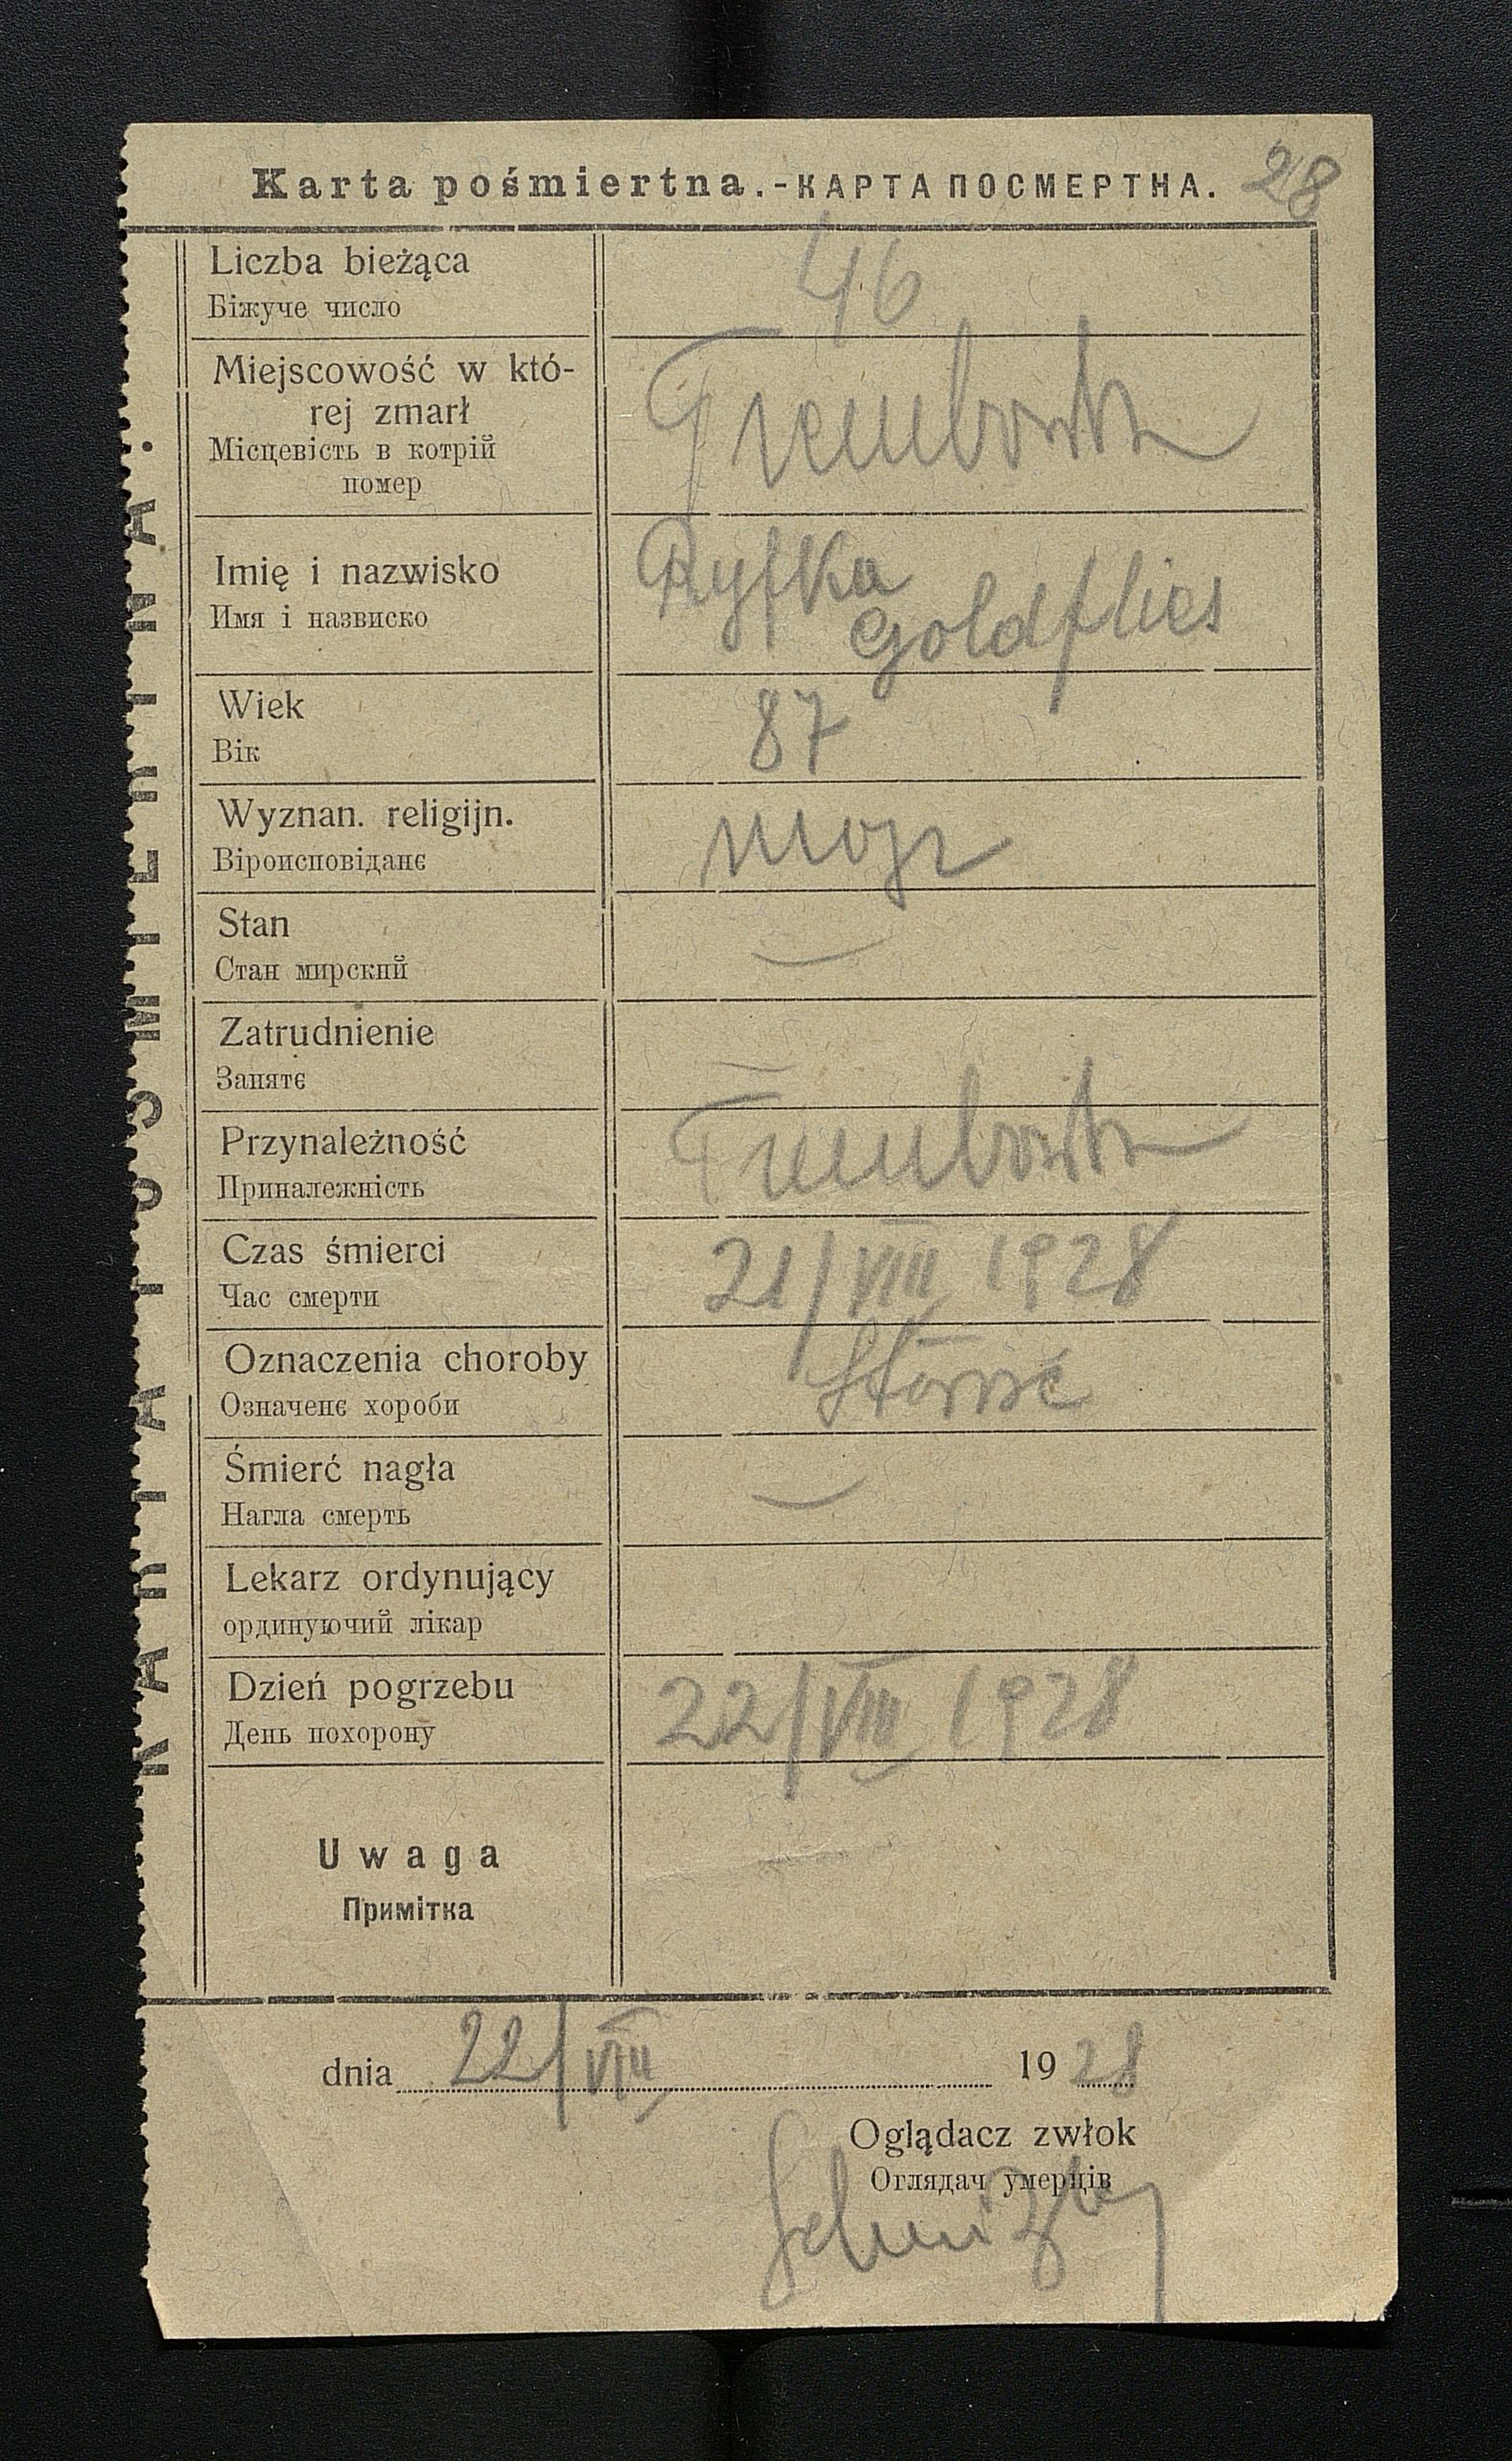 Karta pośmiertna.-КАРТА ПОСМЕРТНА. 28
Liczba bieżąca
Біжуче число
46
Miejscowość w któ-
rej zmarł
Місцевість в котрій
помер
Imię i nazwisko
Имя і назвиско
Ryfka
Goldflies
Wiek
Вік
87
Wyznan. religijn.
Віроисповіданє
mojż
Stan
Стан мирский
—
Zatrudnienie
Занятє
—
Przynależność
Приналежність
Czas śmierci
Час смерти
21/VIII 1928
Oznaczenia choroby
Означенє хороби
Starość
Śmierć nagła
Нагла смерть
—
Lekarz ordynujący
ординуючий лікар
Dzień pogrzebu
День похорону
22/VIII 1928
Uwaga
Примітка
dnia 22/VIII 1928
Oglądacz zwłok
Оглядач умерців